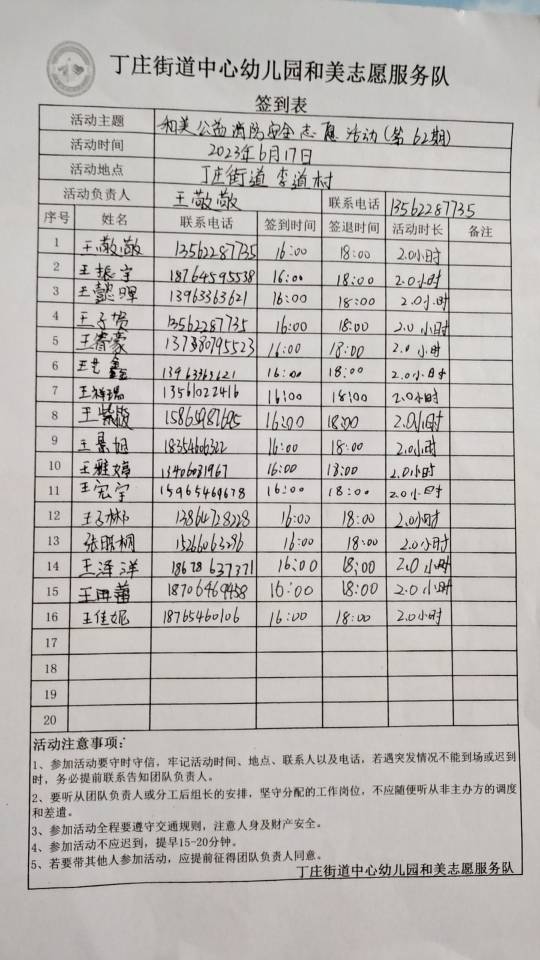 丁庄街道中心幼儿园和美志愿服务队
签到表
活动主题 和美公益消防安全志愿活动(第62期)
活动时间 2023年6月17日
活动地点 丁庄街道 李道村
活动负责人 王敬敬 联系电话 13562287735
序号 姓名 联系电话 签到时间 签退时间 活动时长 备注
1 王敬敬 13562287735 16:00 18:00 2.0小时
2 王振宇 18764595538 16:00 18:00 2.0小时
3 王懿晖 13963363621 16:00 18:00 2.0小时
4 王子贤 13562287735 16:00 18:00 2.0小时
5 王睿豪 16:00 18:00 2.0小时
6 王艺鑫 13963363621 16:00 18:00 2.0小时
7 王祥瑞 13561022416 16:00 18:00 2.0小时
8 王紫璇 16:00 18:00 2.0小时
9 王景旭 16:00 18:00 2.0小时
10 王雅婷 13406031967 16:00 18:00 2.0小时
11 王宏宇 15965469678 16:00 18:00 2.0小时
12 13864728228 16:00 18:00 2.0小时
13 张熙桐 15266063296 16:00 18:00 2.0小时
14 王泽洋 18678637771 16:00 18:00 2.0小时
15 18706469458 16:00 18:00 2.0小时
16 王佳妮 18765460106 16:00 18:00 2.0小时
17
18
19
20
活动注意事项:
1、参加活动要守时守信,牢记活动时间、地点、联系人以及电话,若遇突发情况不能到场或迟到
时,务必提前联系告知团队负责人。
2、要听从团队负责人或分工后组长的安排,坚守分配的工作岗位,不应随便听从非主办方的调度
和差遣。
3、参加活动全程要遵守交通规则,注意人身及财产安全。
4、参加活动不应迟到,提早15-20分钟。
5、若要带其他人参加活动,应提前征得团队负责人同意。
丁庄街道中心幼儿园和美志愿服务队